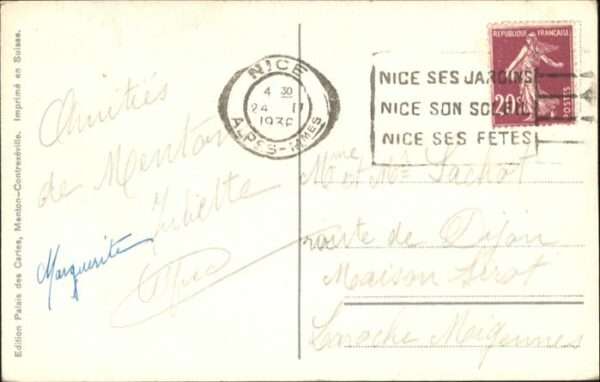 Edition Palais des Cartes, Menton-Contrexéville. Imprimé en Suisse.
Amitiés
de Menton
Juliette
Marguerite
NICE
4 30
24 II
ALPES-MMES
NICE SES JARDINS
NICE SON SOLEIL
NICE SES FÊTES
REPUBLIQUE FRANÇAISE
20c
POSTES
Mme et Mr Sachot
route de Dijon
Maison Serot
Laroche Migennes